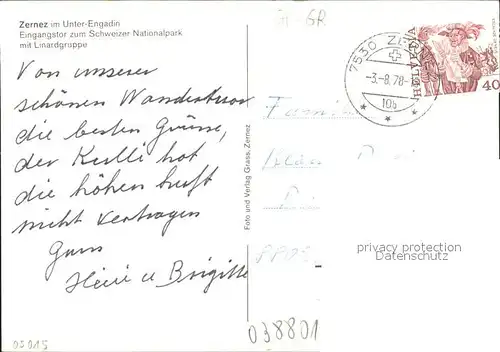 Zernez im Unter-Engadin
Eingangstor zum Schweizer Nationalpark
mit Linardgruppe
Von unserer
schönen Wandertour
die besten Grüsse,
der Kulli hat
die höhen luft
nicht vertragen
Heiri u Brigitte
Foto und Verlag Grass, Zernez
GR
7530 ZE
-3.-8.78-1
10b
HELVETIA
40
privacy protection
Datenschutz
038801
05015